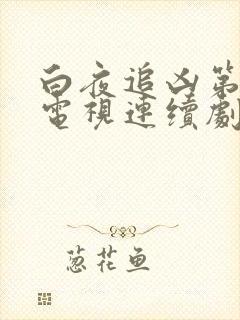 白夜追凶第
電視連續劇
葱花鱼